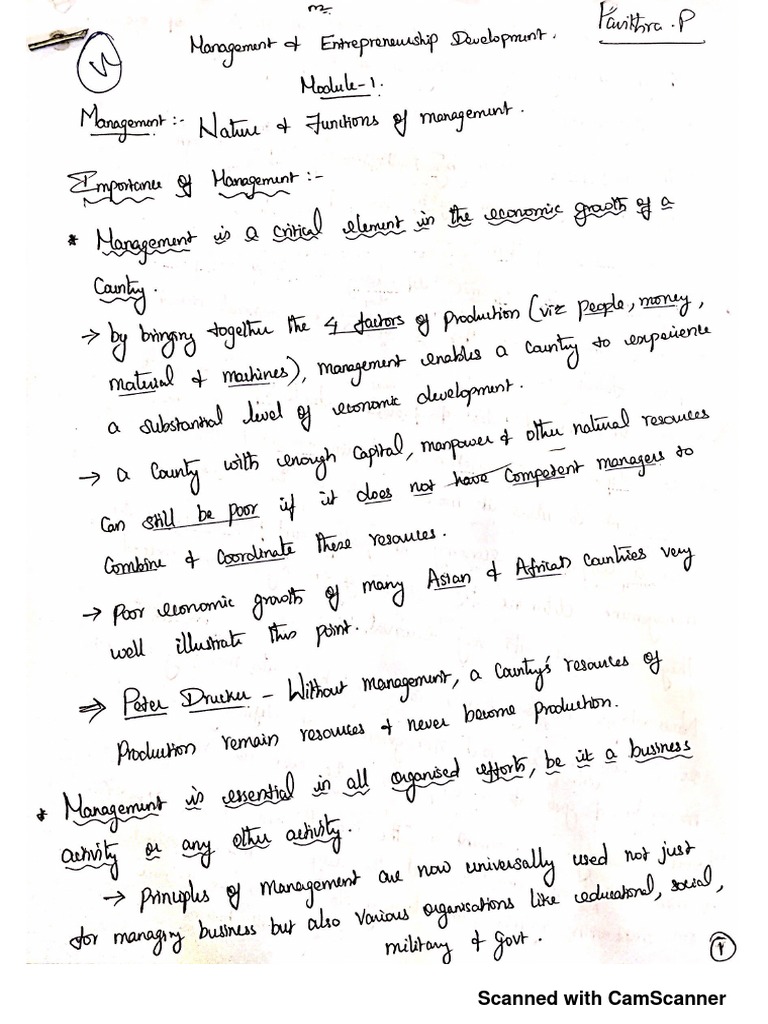 Pavithra.P
Management & Entrepreneurship Development.
Module-1.
Management:- Nature & Functions of management.
Importance of Management:-
* Management is a critical element in the economic growth of a
Country.
→ by bringing together the 4 factors of production (viz people, money,
material & machines), management enables a country to experience
a substantial level of economic development.
→ a County with enough Capital, manpower & other natural resources
Can still be poor if it does not have Competent managers to
Combine & Coordinate these resources.
→ Poor economic growth of many Asian & African countries very
well illustrate this point.
⇒ Peter Drucker - Without management, a Country's resources of
Production remain resources & never become Production.
* Management is essential in all organised efforts, be it a business
activity or any other activity.
→ Principles of management are now universally used not just
for managing business but also Various organisations like educational, social,
military & Govt.
1
Scanned with CamScanner